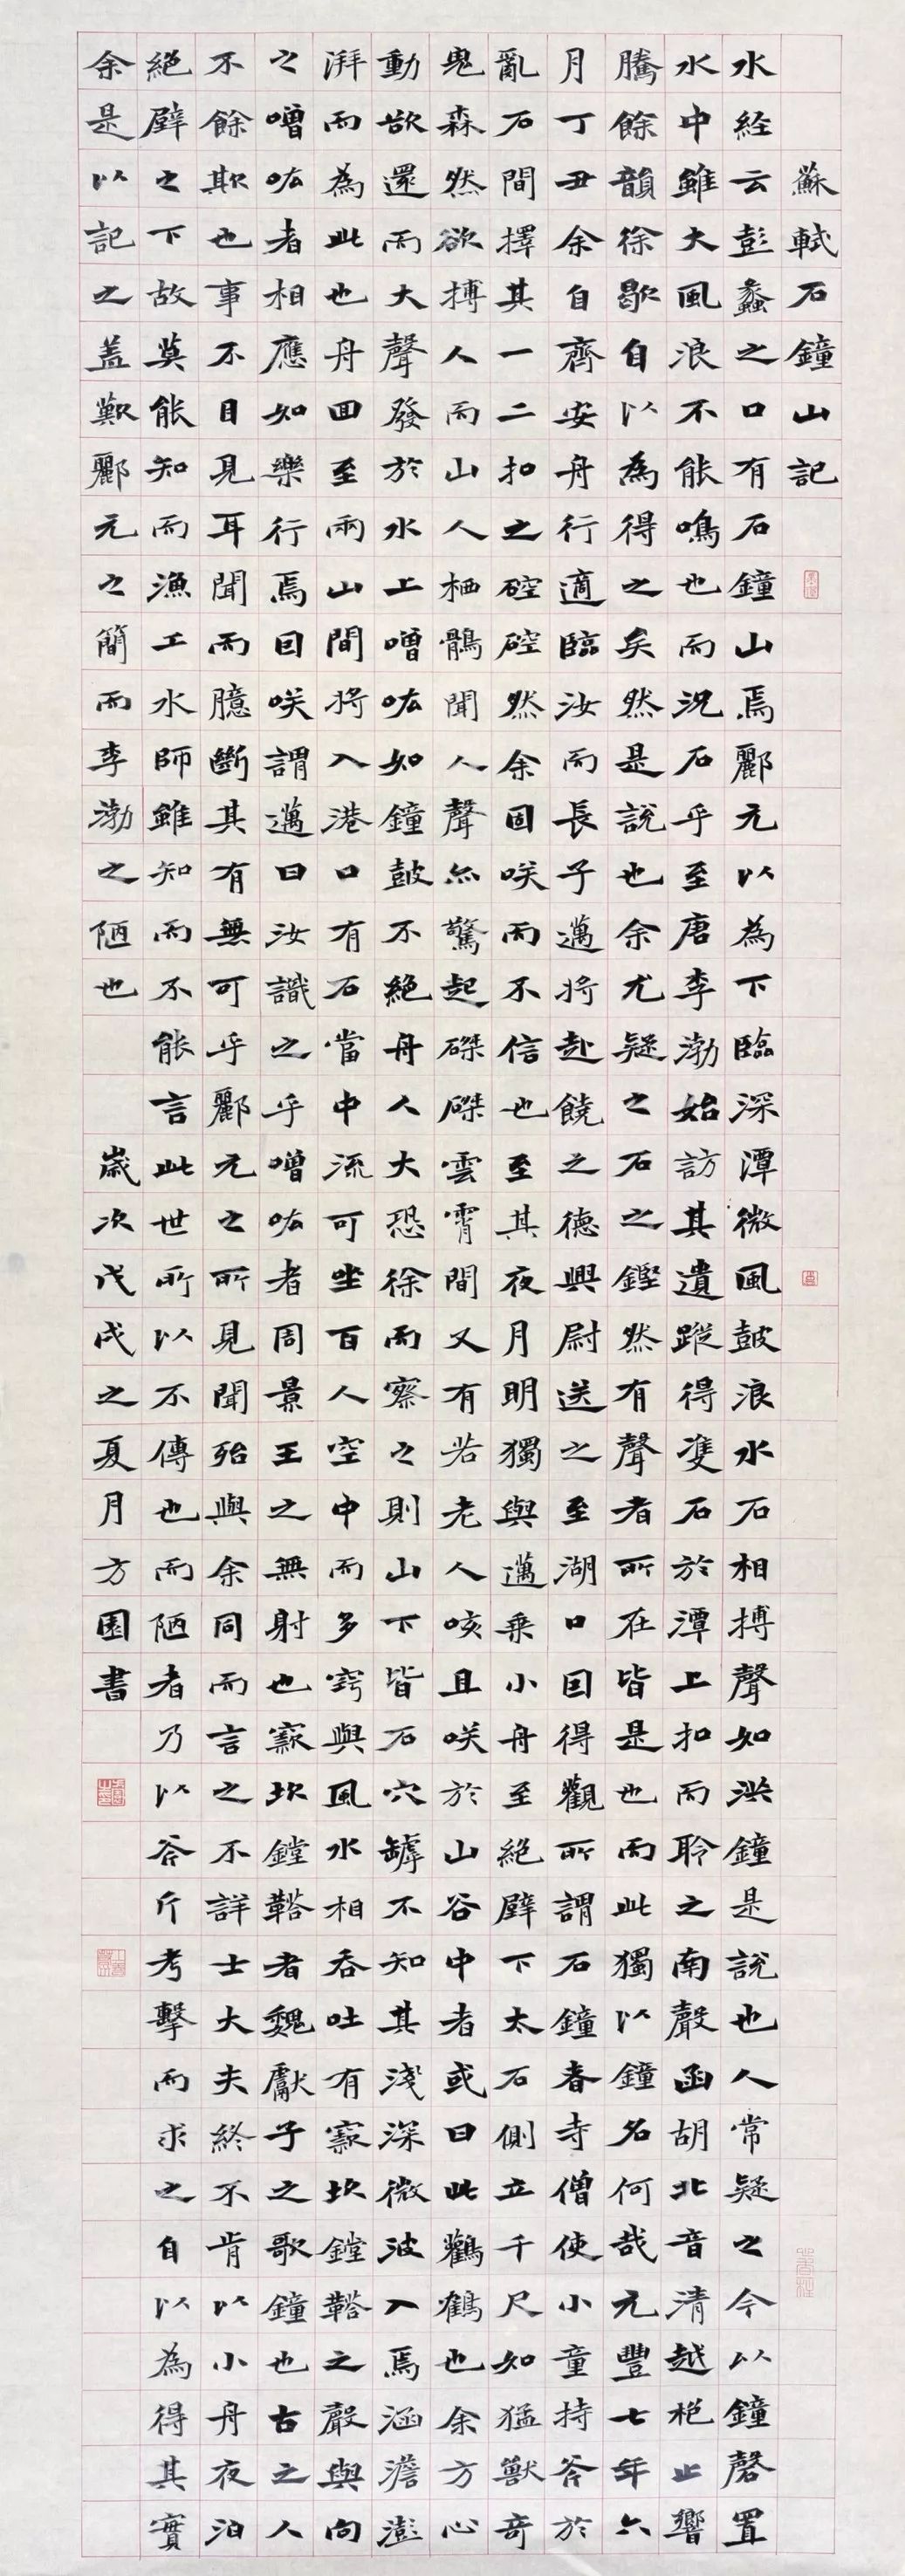 蘇軾石鐘山記
水経云彭蠡之口有石鐘山焉酈元以為下臨深潭微風鼓浪水石相搏聲如洪鐘是說也人常疑之今以鐘磬置
水中雖大風浪不能鳴也而況石乎至唐李渤始訪其遺蹤得雙石於潭上扣而聆之南聲函胡北音清越枹止響
騰餘韻徐歇自以為得之矣然是說也余尤疑之石之鏗然有聲者所在皆是也而此獨以鐘名何哉元豐七年六
月丁丑余自齊安舟行適臨汝而長子邁將赴饒之德興尉送之至湖口因得觀所謂石鐘者寺僧使小童持斧於
亂石間擇其一二扣之硿硿然余固咲而不信也至其夜月明獨與邁乗小舟至絕壁下太石側立千尺如猛獸奇
鬼森然欲搏人而山人栖鶻聞人聲亦驚起磔磔雲霄間又有若老人咳且咲於山谷中者或曰此鸛鶴也余方心
動欲還而大聲發於水上噌吰如鐘鼓不絕舟人大恐徐而察之則山下皆石穴罅不知其淺深微波入焉涵澹澎
湃而為此也舟回至兩山間將入港口有石當中流可坐百人空中而多竅與風水相吞吐有窾坎鏜鞳之聲與向
之噌吰者相應如樂行焉因咲謂邁曰汝識之乎噌吰者周景王之無射也窾坎鏜鞳者魏獻子之歌鐘也古之人
不餘欺也事不目見耳聞而臆斷其有無可乎酈元之所見聞殆與余同而言之不詳士大夫終不肯以小舟夜泊
絕壁之下故莫能知而漁工水師雖知而不能言此世所以不傳也而陋者乃以斧斤考擊而求之自以為得其實
余是以記之蓋歎酈元之簡而李渤之陋也 歲次戊戌之夏月方園書